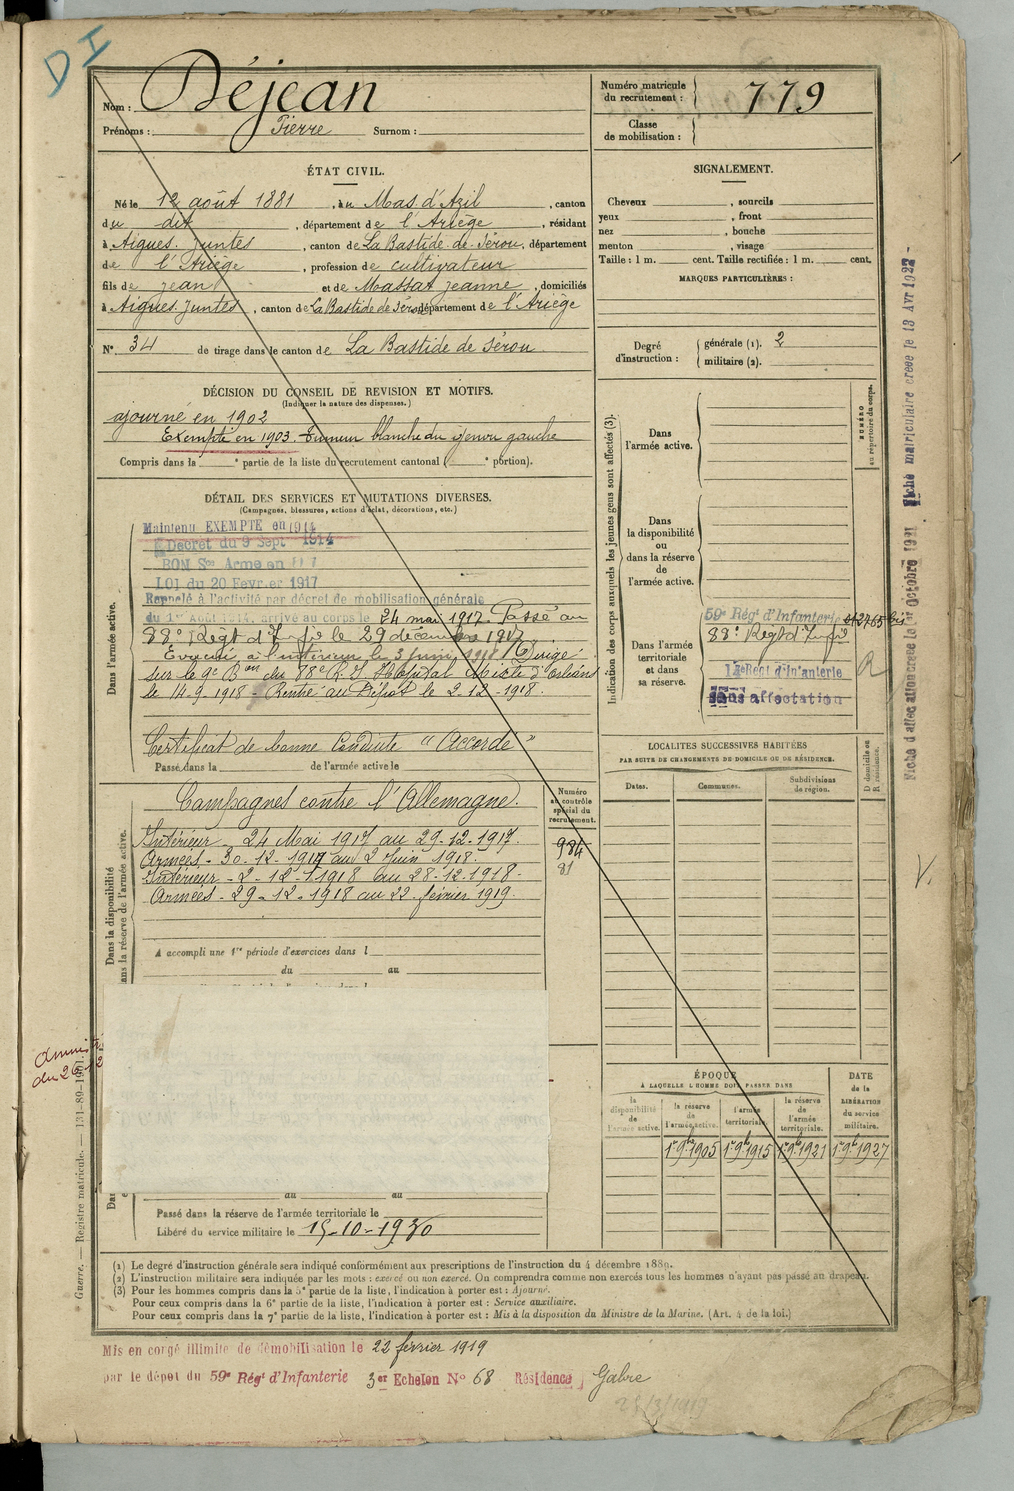 DI
Nom : Déjean
Prénoms : Pierre Surnom :
Numéro matricule du recrutement : 779
Classe de mobilisation :
ÉTAT CIVIL.
Né le 12 août 1881, à u Mas d'Azil, canton
du dit, département de l'Ariège, résidant
à Aigues-Juntes, canton de La Bastide-de-Sérou, département
de l'Ariège, profession de cultivateur
fils de Jean et de Massat Jeanne, domiciliés
à Aigues-Juntes, canton de La Bastide de Sérou département de l'Ariège
N° 34 de tirage dans le canton de La Bastide de Sérou
SIGNALEMENT.
Cheveux , sourcils
yeux , front
nez , bouche
menton , visage
Taille : 1 m. cent. Taille rectifiée : 1 m. cent.
MARQUES PARTICULIÈRES :
Degré d'instruction : générale (1). 2
militaire (2).
DÉCISION DU CONSEIL DE REVISION ET MOTIFS.
(Indiquer la nature des dispenses.)
ajourné en 1902
Exempté en 1903. Tumeur blanche du genou gauche
Compris dans la e partie de la liste du recrutement cantonal ( e portion).
DÉTAIL DES SERVICES ET MUTATIONS DIVERSES.
(Campagnes, blessures, actions d'éclat, décorations, etc.)
Dans l'armée active.
Maintenu EXEMPTÉ en 1914
Décret du 9 Sept 1914
BON Sce Armé en 1917
LOI du 20 Février 1917
Rappelé à l'activité par décret de mobilisation générale
du 1er Août 1914, arrivé au corps le 24 mai 1917. Passé au
88e Régt d'Infie le 29 décembre 1917
Evacué à l'intérieur le 3 Juin 1918
sur le 9e Bon du 88e R.I. Hôpital Mixte d'Orléans
le 14-9-1918 - Rentré au Dépôt le 2-12-1918.
Certificat de bonne Conduite "Accordé"
Passé dans la de l'armée active le
Indication des corps auxquels les jeunes gens sont affectés (3).
NUMÉRO au répertoire du corps.
Dans l'armée active.
Dans la disponibilité ou dans la réserve de l'armée active.
Dans l'armée territoriale et dans sa réserve.
59e Régt d'Infanterie
88e Régt d'Infie
Régt d'Infanterie
Sans affectation
R
Fiche matriculaire créée le 13 Avr 1922
LOCALITÉS SUCCESSIVES HABITÉES
PAR SUITE DE CHANGEMENTS DE DOMICILE OU DE RÉSIDENCE.
Dates. Communes. Subdivisions de région.
D domicile ou R résidence.
Dans la disponibilité
Campagnes contre l'Allemagne.
Intérieur - 24 Mai 1917 au 29-12-1917.
Armées - 30-12-1917 au 2 Juin 1918.
Intérieur - 2-12-1918 au 28-12-1918.
Armées - 29-12-1918 au 22 février 1919.
Numéro au contrôle spécial du recrutement.
984
81
V.
A accompli une 1re période d'exercices dans l
du au
au au
Passé dans la réserve de l'armée territoriale le
Libéré du service militaire le 15-10-1930
ÉPOQUE
À LAQUELLE L'HOMME DOIT PASSER DANS
la disponibilité de l'armée active. la réserve de l'armée active. l'armée territoriale. la réserve de l'armée territoriale.
DATE de la LIBÉRATION du service militaire.
1er 9bre 1905 1er 9bre 1915 1er 9bre 1921 1er 9bre 1927
Guerre. — Registre matricule. — 131-89-1901.
(1) Le degré d'instruction générale sera indiqué conformément aux prescriptions de l'instruction du 4 décembre 1889.
(2) L'instruction militaire sera indiquée par les mots : exercé ou non exercé. On comprendra comme non exercés tous les hommes n'ayant pas passé au drapeau.
(3) Pour les hommes compris dans la 5e partie de la liste, l'indication à porter est : Ajourné.
Pour ceux compris dans la 6e partie de la liste, l'indication à porter est : Service auxiliaire.
Pour ceux compris dans la 7e partie de la liste, l'indication à porter est : Mis à la disposition du Ministre de la Marine. (Art. 4 de la loi.)
Mis en congé illimité de démobilisation le 22 février 1919
par le dépôt du 59e Régt d'Infanterie 3er Echelon N° 68 Résidence Gabre